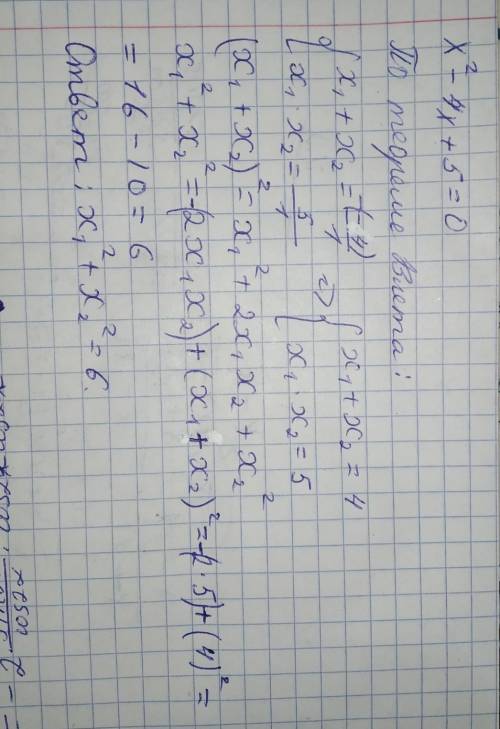 x² - 4x + 5 = 0
По теореме Виета:
{ x₁ + x₂ = -(-4)/1 => { x₁ + x₂ = 4
{ x₁ · x₂ = 5/1 { x₁ · x₂ = 5
(x₁ + x₂)² = x₁² + 2x₁x₂ + x₂²
x₁² + x₂² = -(2x₁x₂) + (x₁ + x₂)² = -(2·5) + (4)² =
= 16 - 10 = 6
Ответ: x₁² + x₂² = 6.